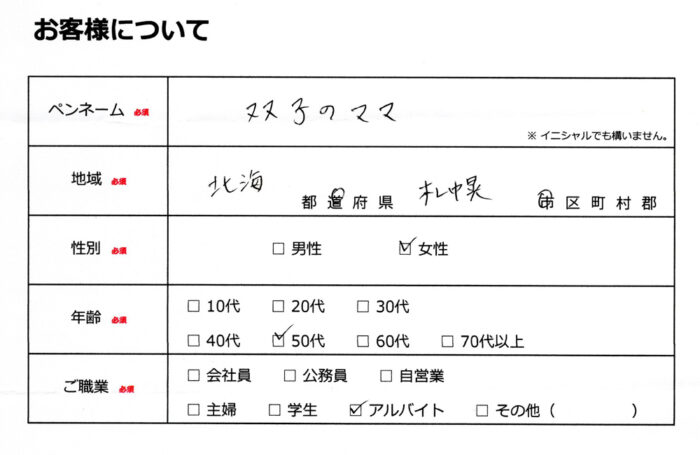 お客様について
ペンネーム 必須 双子のママ
※ イニシャルでも構いません。
地域 必須 北海 都 道 府 県 札幌 市 区 町 村 郡
性別 必須 □ 男性 ☑ 女性
年齢 必須 □ 10代 □ 20代 □ 30代
□ 40代 ☑ 50代 □ 60代 □ 70代以上
ご職業 必須 □ 会社員 □ 公務員 □ 自営業
□ 主婦 □ 学生 ☑ アルバイト □ その他( )